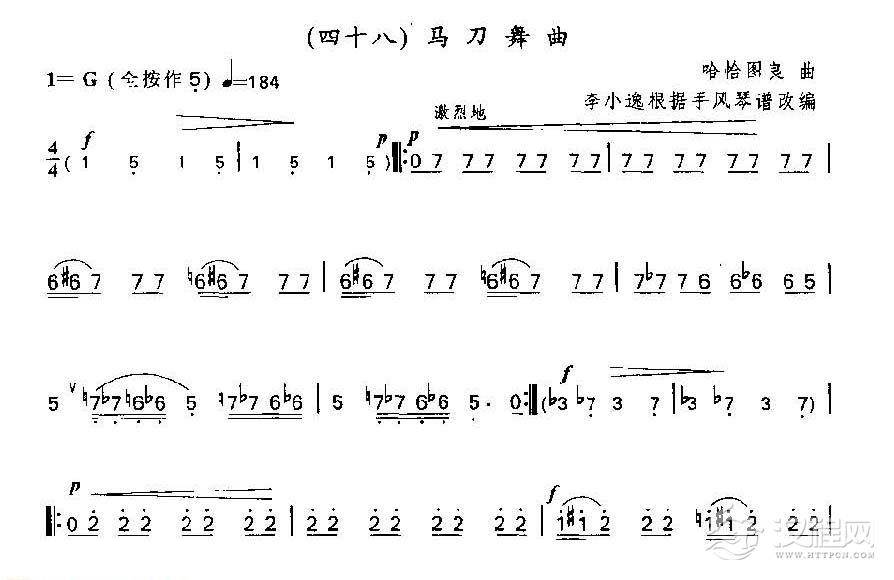 (四十八) 马刀舞曲
1= G (全按作5) ♩=184
哈恰图良 曲
李小逸根据手风琴谱改编
激烈地
f p p
4/4 ( 1 5 1 5 | 1 5 1 5 ) ‖: 0 7 7 7 7 7 7 7 | 7 7 7 7 7 7 7 7 |
6 #6 7 7 7 ♮6 #6 7 7 7 | 6 #6 7 7 7 ♮6 #6 7 7 7 | 7 ♭7 7 6 6 ♭6 6 5 |
f
5 ∨ ♮7 ♭7 ♮6 ♭6 5 ♮7 ♭7 6 ♭6 | 5 ♮7 ♭7 6 ♭6 5 . 0 :‖ ( ♭3 ♭7 3 7 | ♭3 ♭7 3 7 )
p f
‖: 0 2 2 2 2 2 2 2 | 2 2 2 2 2 2 2 2 | 1 #1 2 2 2 ♮1 #1 2 2 2
汉程网
WWW.HTTPCN.COM